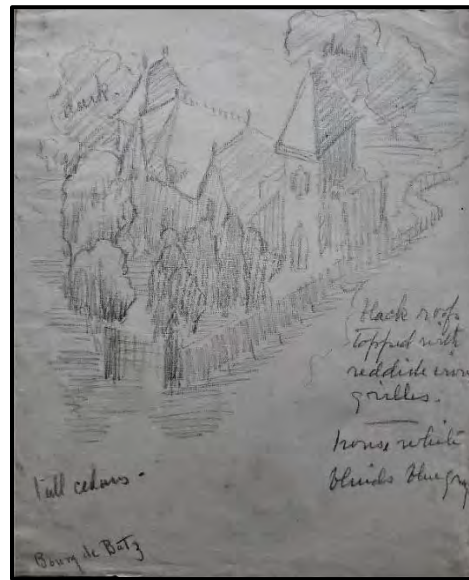 dark.
dark
black roofs
topped with
reddish iron
grilles.
house white
blinds blue gray
Tall cedars -
Bourg de Batz